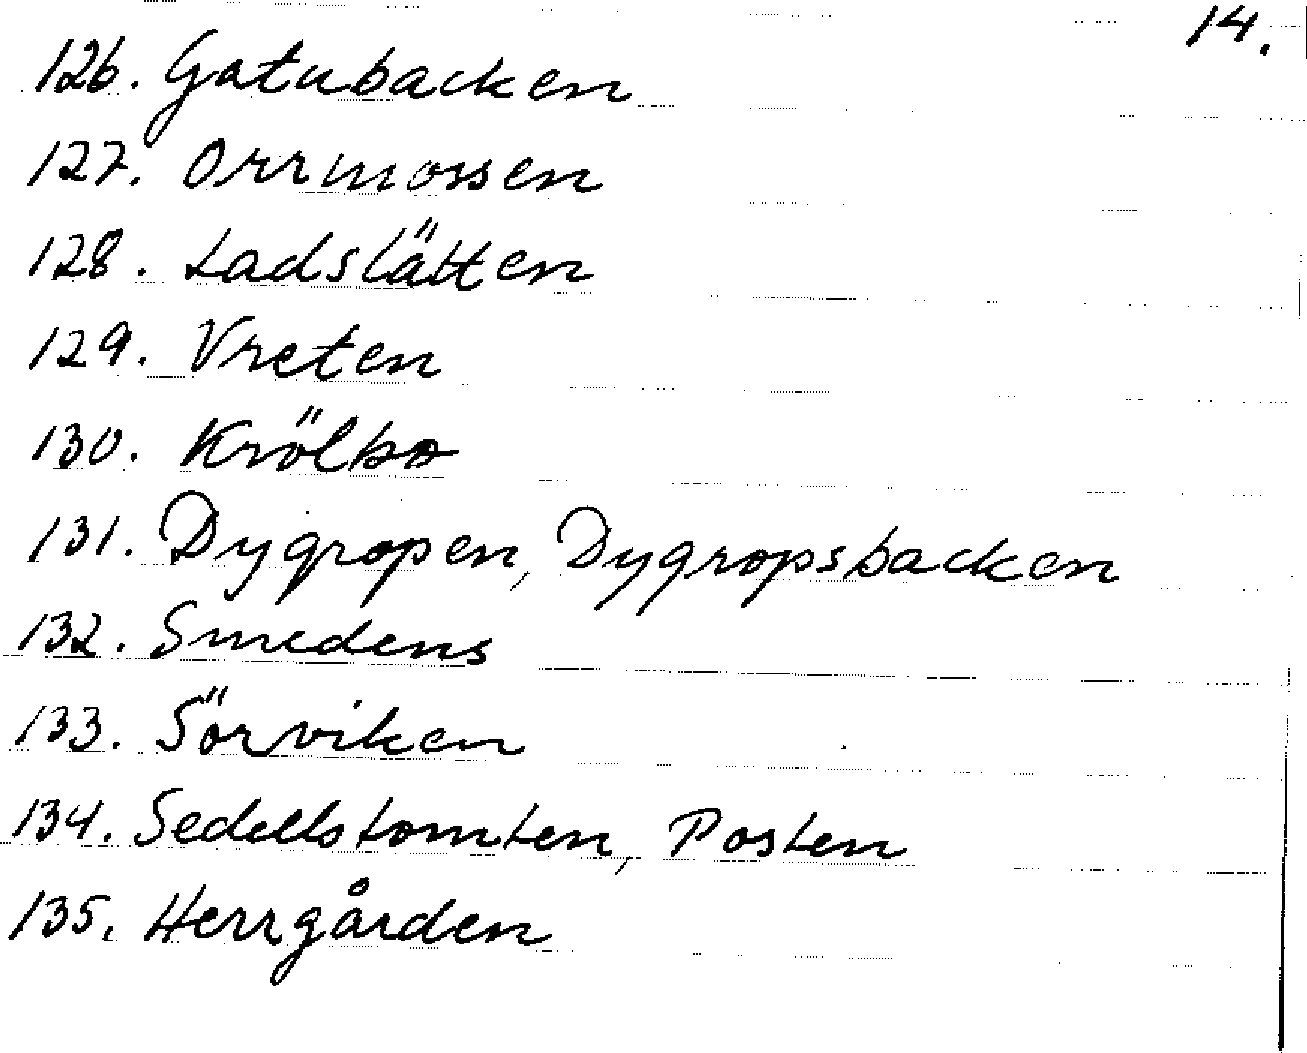 14.
126. Gatubacken
127. Orrmossen
128. Ladslätten
129. Vreten
130. Krölbo
131. Dygropen, Dygropsbacken
132. Smedens
133. Sörviken
134. Sedellstomten, Posten
135. Herrgården